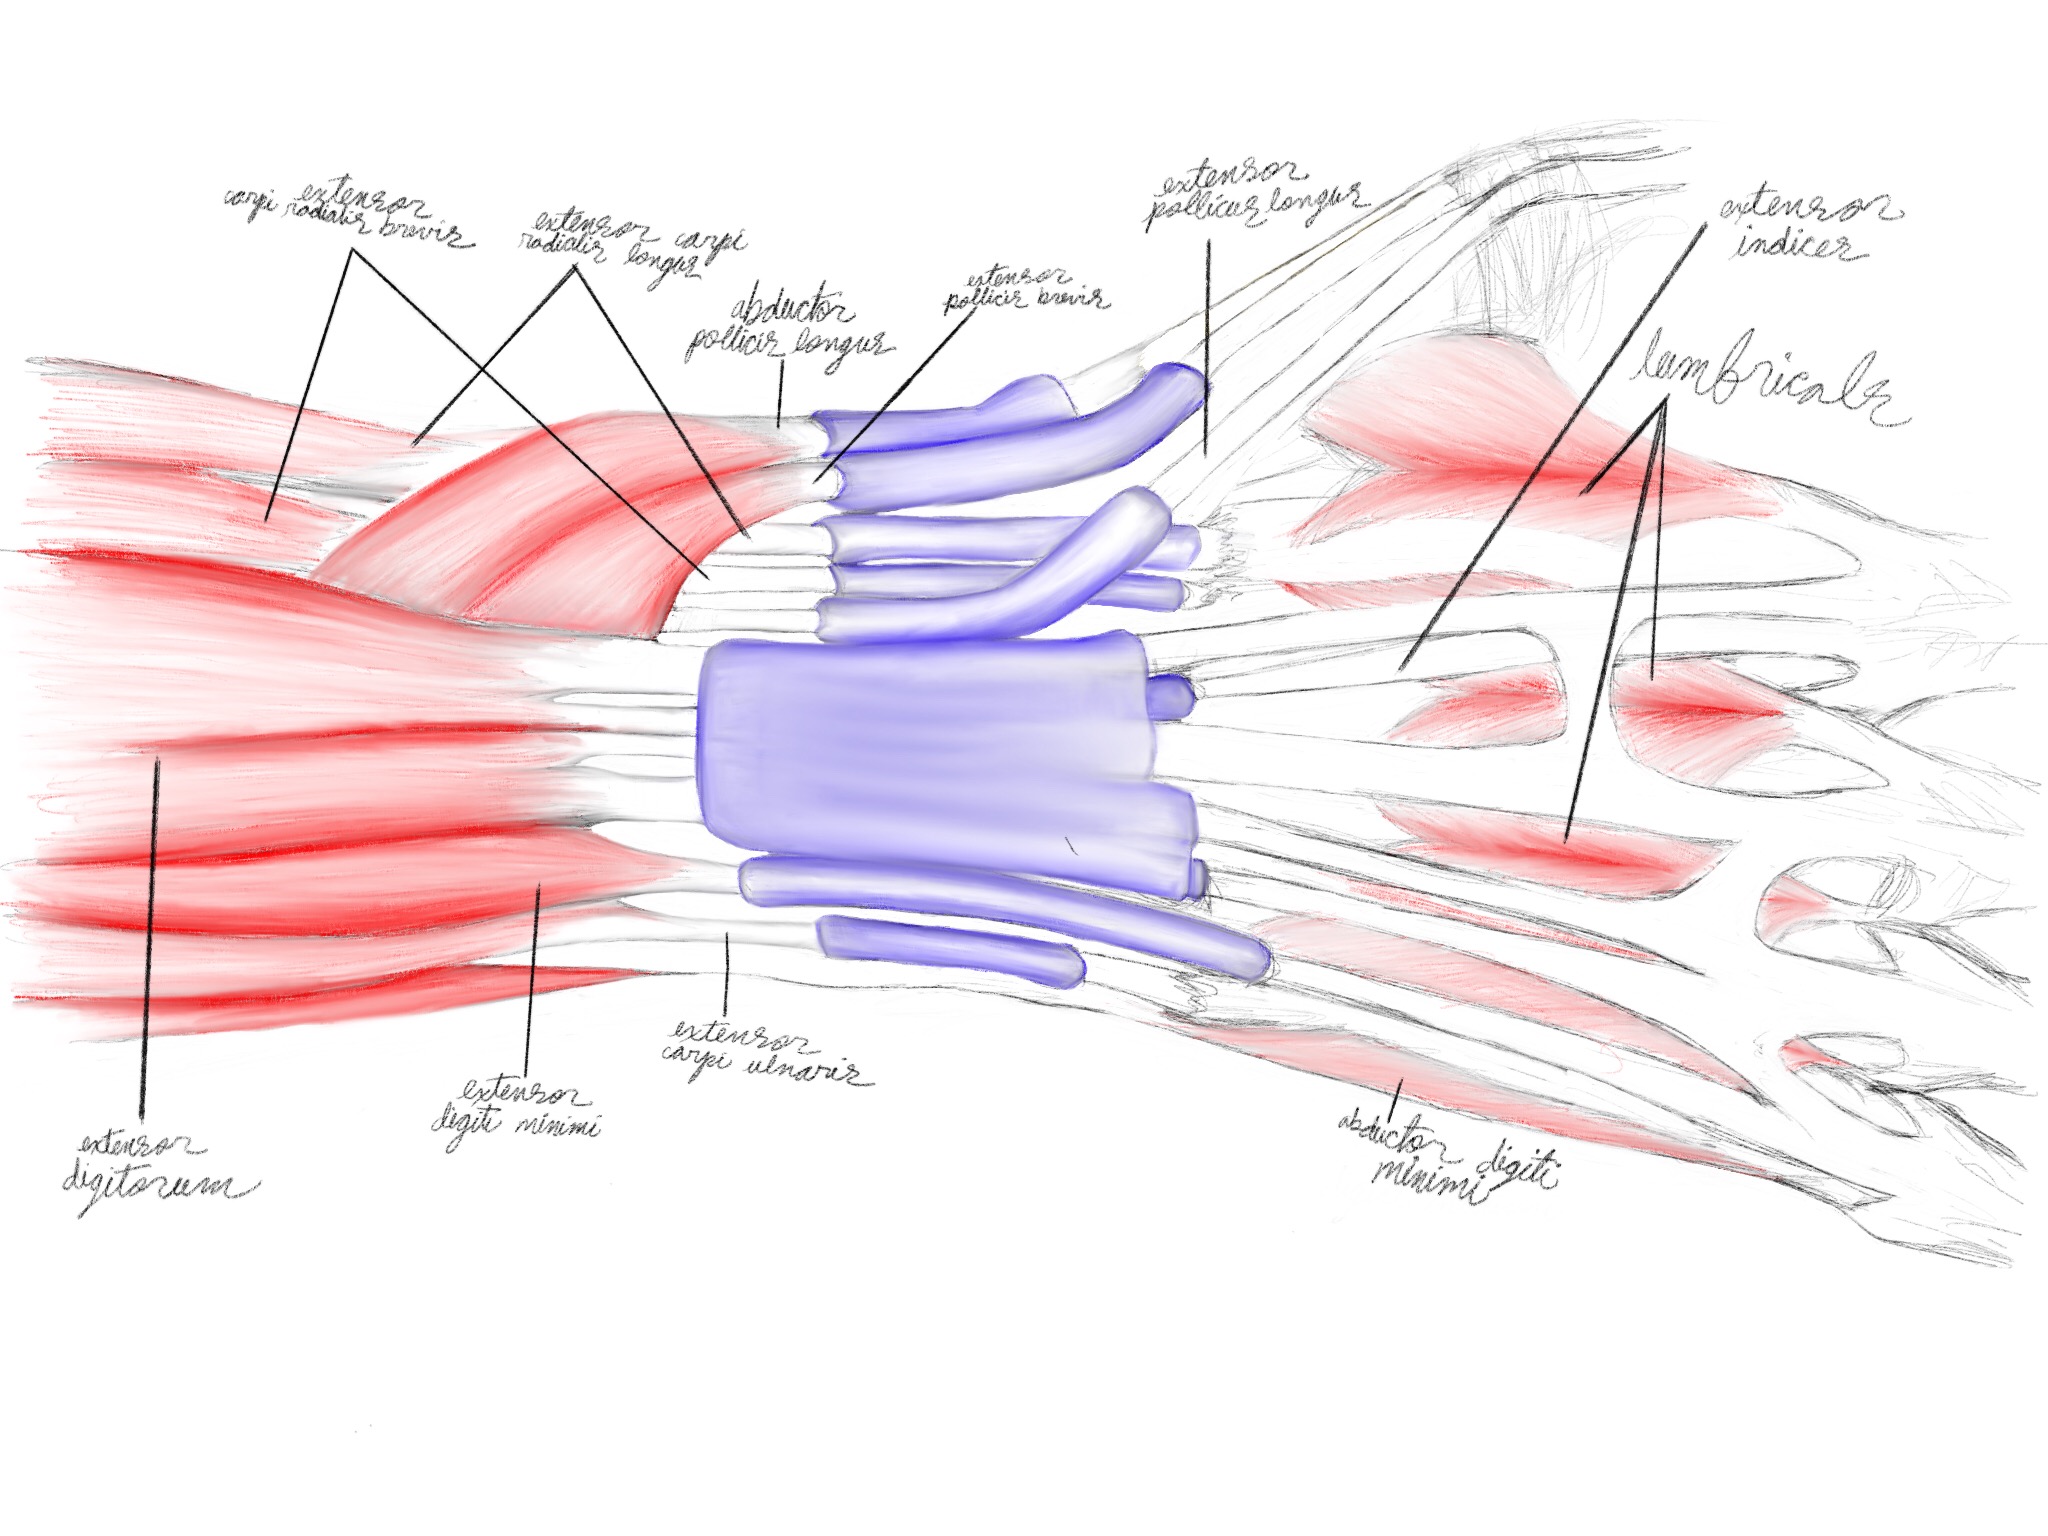 extensor
carpi radialis brevis
extensor carpi
radialis longus
abductor
pollicis longus
extensor
pollicis brevis
extensor
pollicus longus
extensor
indices
lumbricals
extensor
digitorum
extensor
digiti minimi
extensor
carpi ulnaris
abductor digiti
minimi